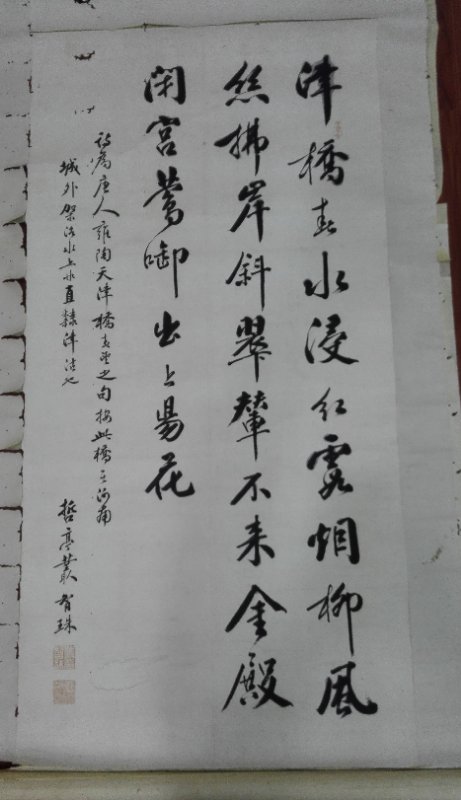 津橋春水浸紅霞烟柳風
絲拂岸斜翠輦不来金殿
閇宮鶯啣出上昜花
詩為唐人雍陶天津橋春望之句按此橋在河南
城外架洛水上非直隸津沽也
哲亭黄智珠